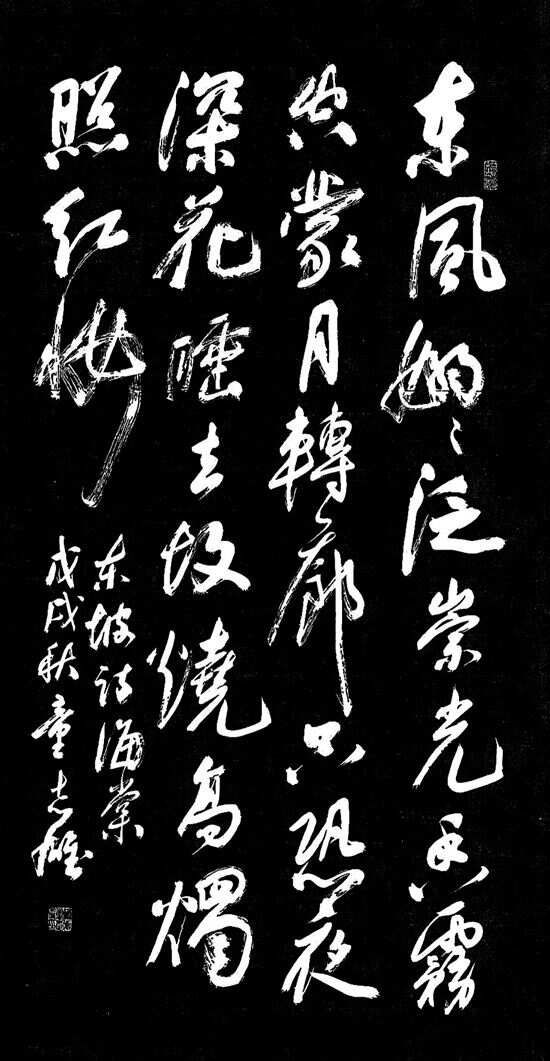 东風嫋々泛崇光香霧
空蒙月轉廊只恐夜
深花睡去故燒高燭
照红妝
东坡诗海棠
戊戌秋童志雄